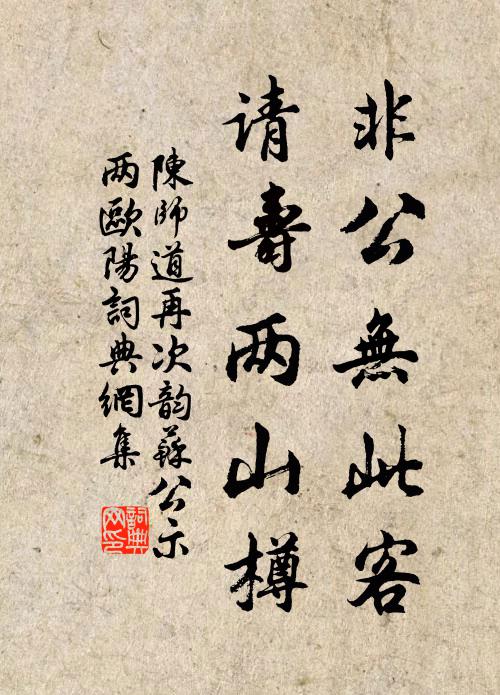 非公無此客
请壽两山樽
陳師道再次韵蘇公示
两歐陽詞典網集
詞典网印